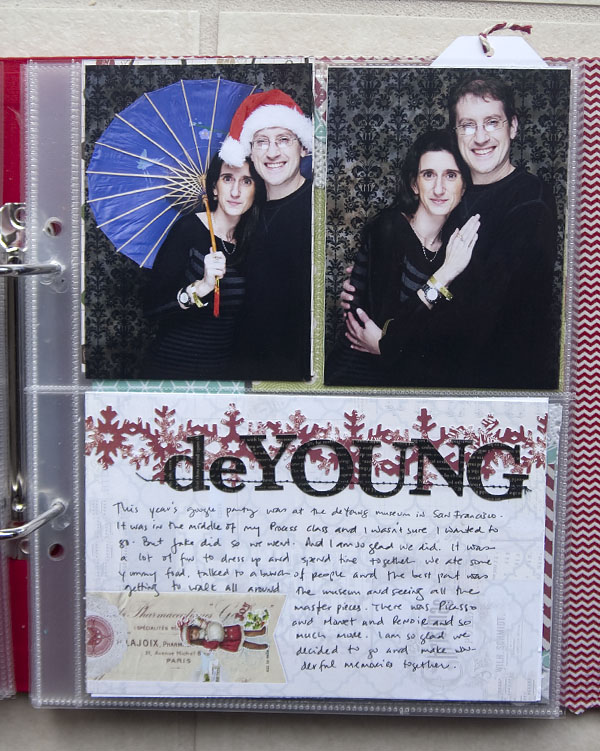 deYOUNG
This year's google party was at the deYoung museum in San Francisco.
It was in the middle of my Process class and I wasn't sure I wanted to
go. But Jake did so we went. And I am so glad we did. It was
a lot of fun to dress up and spend time together. We ate some
yummy food, talked to a bunch of people and the best part was
getting to walk all around the museum and seeing all the
master pieces. There was Picasso
and Manet and Renoir and so
much more. I am so glad we
decided to go and make won-
derful memories together.
Pharmaceutica
SPÉCIALITÉS
LAJOIX, PHARM
31, Avenue Michel
PARIS